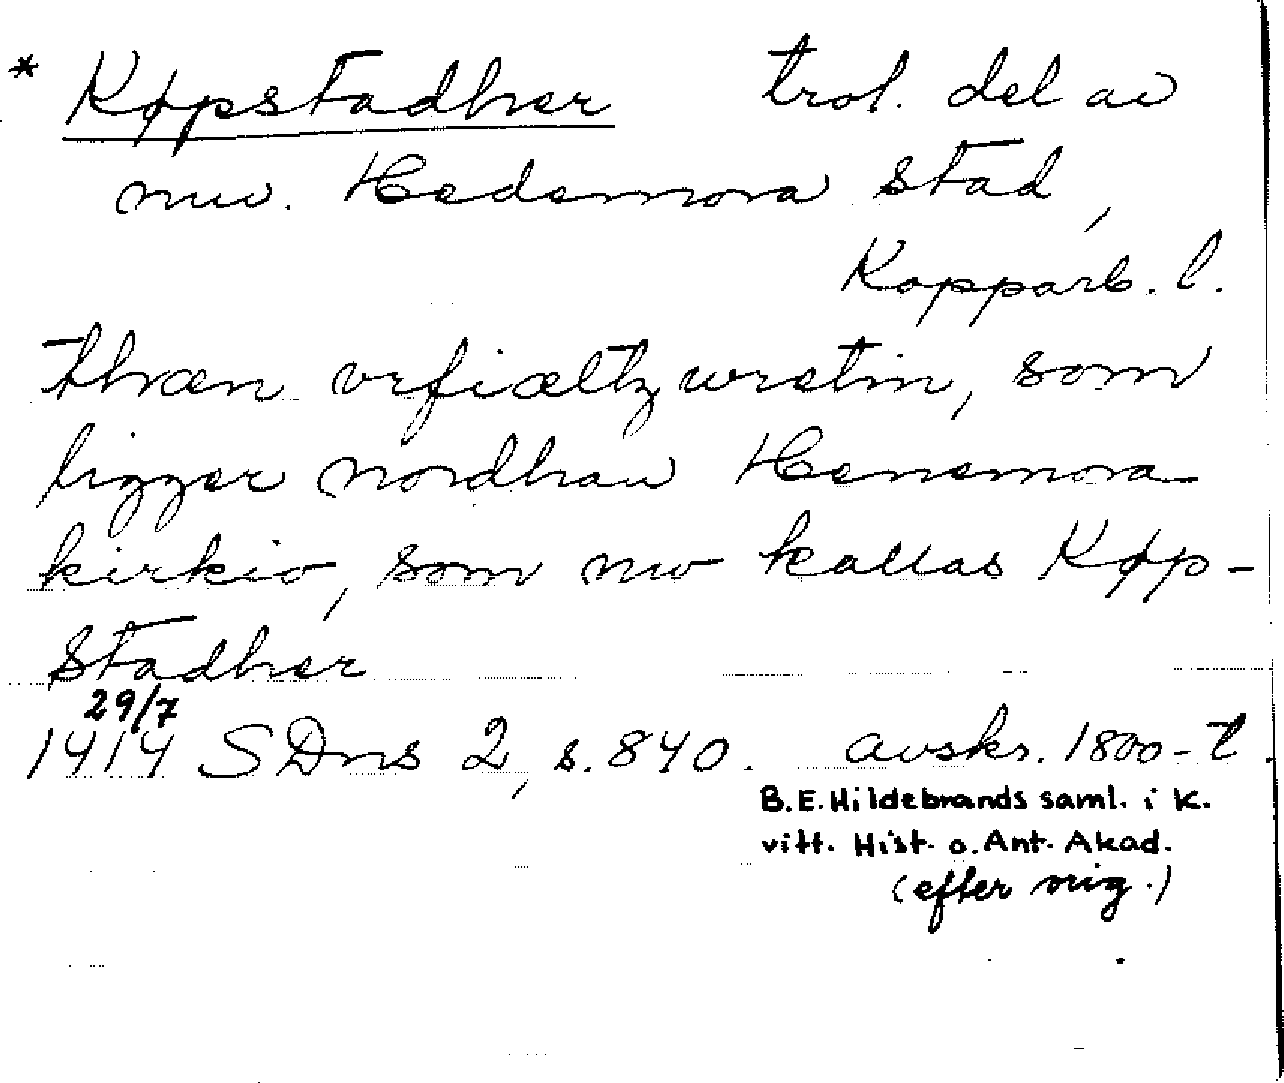 * Køpstadher trol. del av
nuv. Hedemora stad,
Kopparb. l.
thræn vrfiæltz wretin, som
ligger nordhan Henemora
kirkio, som nw kallas Køp-
stadher
29/7
1414 SDns 2, s. 840. avskr. 1800-t.
B.E. Hildebrands saml. i K.
Vitt. Hist. o. Ant. Akad.
(efter orig.)